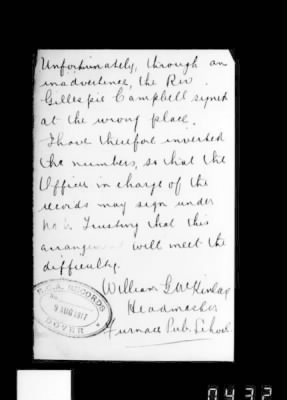 Unfortunately, through an
inadvertence, the Rev.
Gillespie Campbell signed
at the wrong place.
I have therefore inverted
the numbers, so that the
Officer in charge of the
records may sign under
No 6. Trusting that this
arrangement will meet the
difficulty.
William G McKinlay
Headmaster
Furnace Pub. School
R.G.A. RECORDS
9 AUG 1917
DOVER
0432